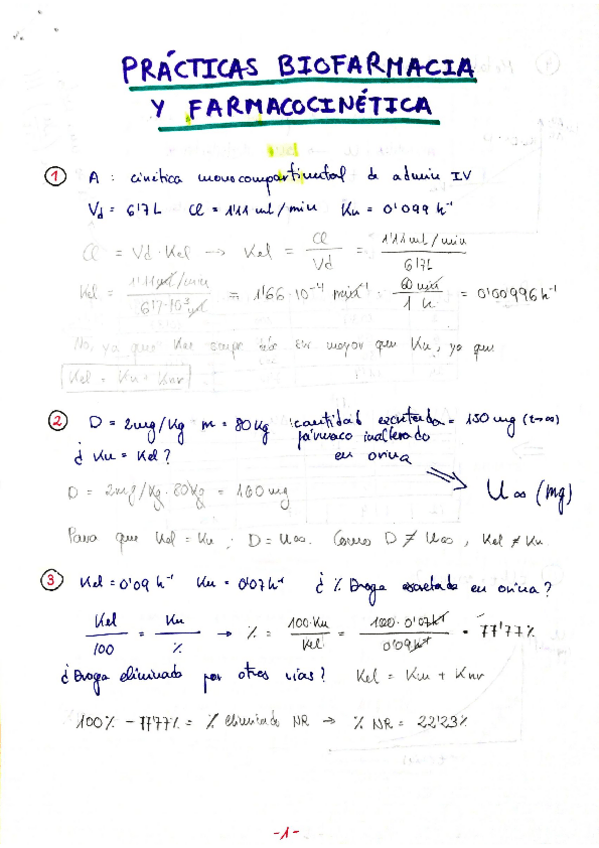 PRÁCTICAS BIOFARMACIA
Y FARMACOCINÉTICA
1 A: cinética monocompartimental de admin IV
Vd = 6'7L Cl = 1'11 ml/min Ku = 0'099 h⁻¹
Cl = Vd · Kel → Kel = Cl / Vd = 1'11 ml/min / 6'7L
Kel = 1'11 ml/min / 6'7·10³ ml = 1'66·10⁻⁴ min⁻¹ · 60 min / 1 h = 0'00996 h⁻¹
No, ya que Kel ser mayor que Ku, ya que
Kel = Ku + Knr
2 D = 2mg/Kg m = 80Kg cantidad excretada = 150 mg (t→∞)
¿Ku = Kel? fármaco inalterado
en orina
U∞ (mg)
D = 2mg/Kg · 80Kg = 160mg
Para que Kel = Ku, D = U∞. Como D ≠ U∞, Kel ≠ Ku
3 Kel = 0'09 h⁻¹ Ku = 0'07 h⁻¹ ¿% Droga excretada en orina?
Kel / 100 = Ku / % → % = 100·Ku / Kel = 100 · 0'07 h⁻¹ / 0'09 h⁻¹ = 77'77%
¿Droga eliminada por otras vías? Kel = Ku + Knr
100% - 77'77% = % eliminado NR → % NR = 22'23%
-1-